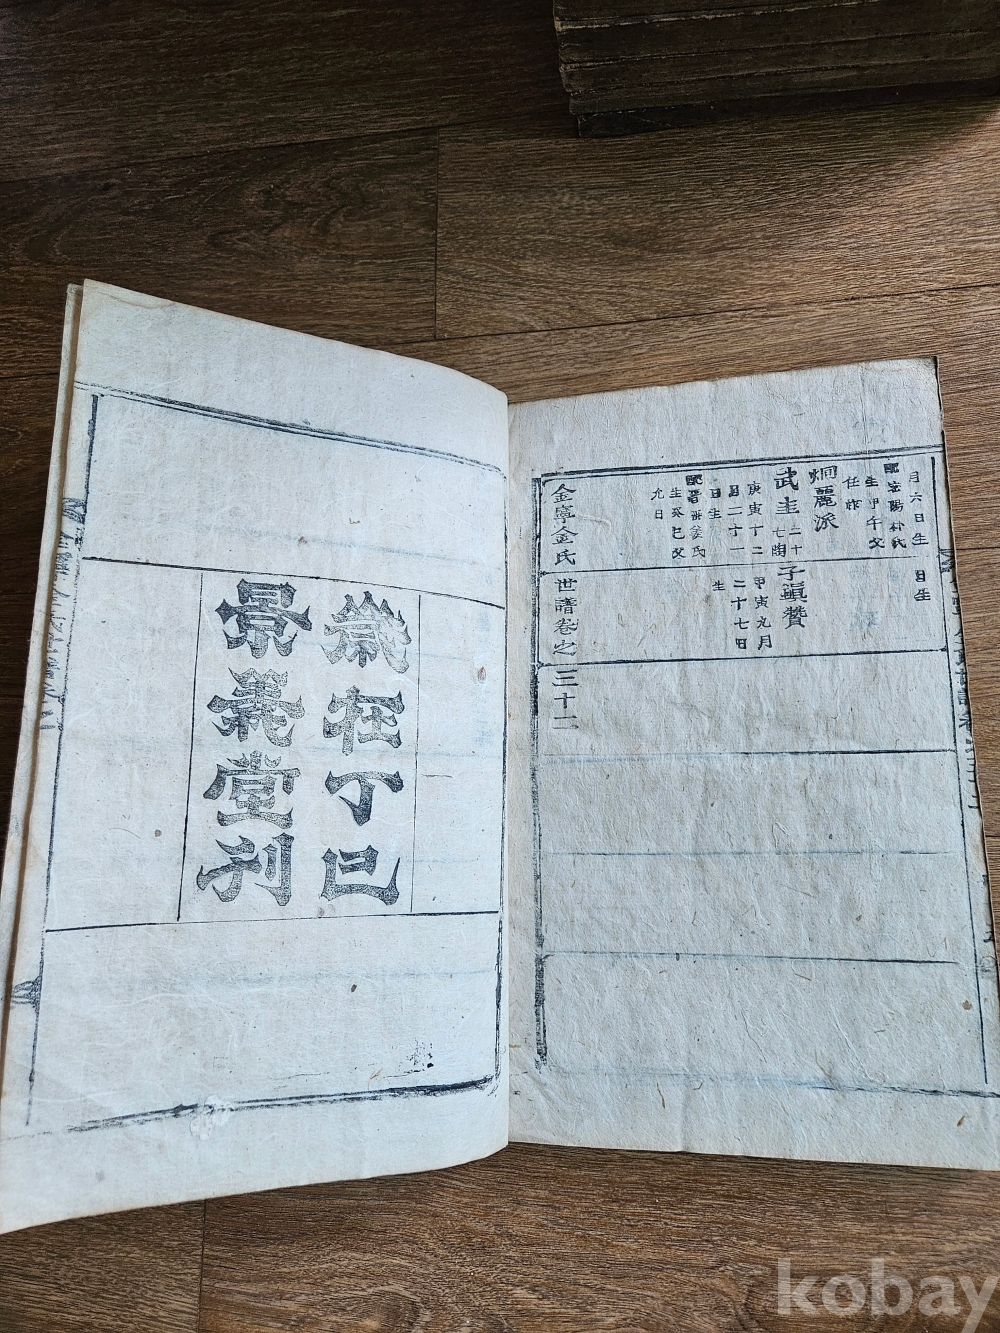 月六日生
日生
生甲午父
任祚
炯麗派
武圭
二十七
子鎭贊
庚寅十二
月二十一
日生
甲寅九月
二十七日
生
生癸巳父
九日
金寧金氏世譜卷之三十一
歲在丁巳
景義堂刊
kobay